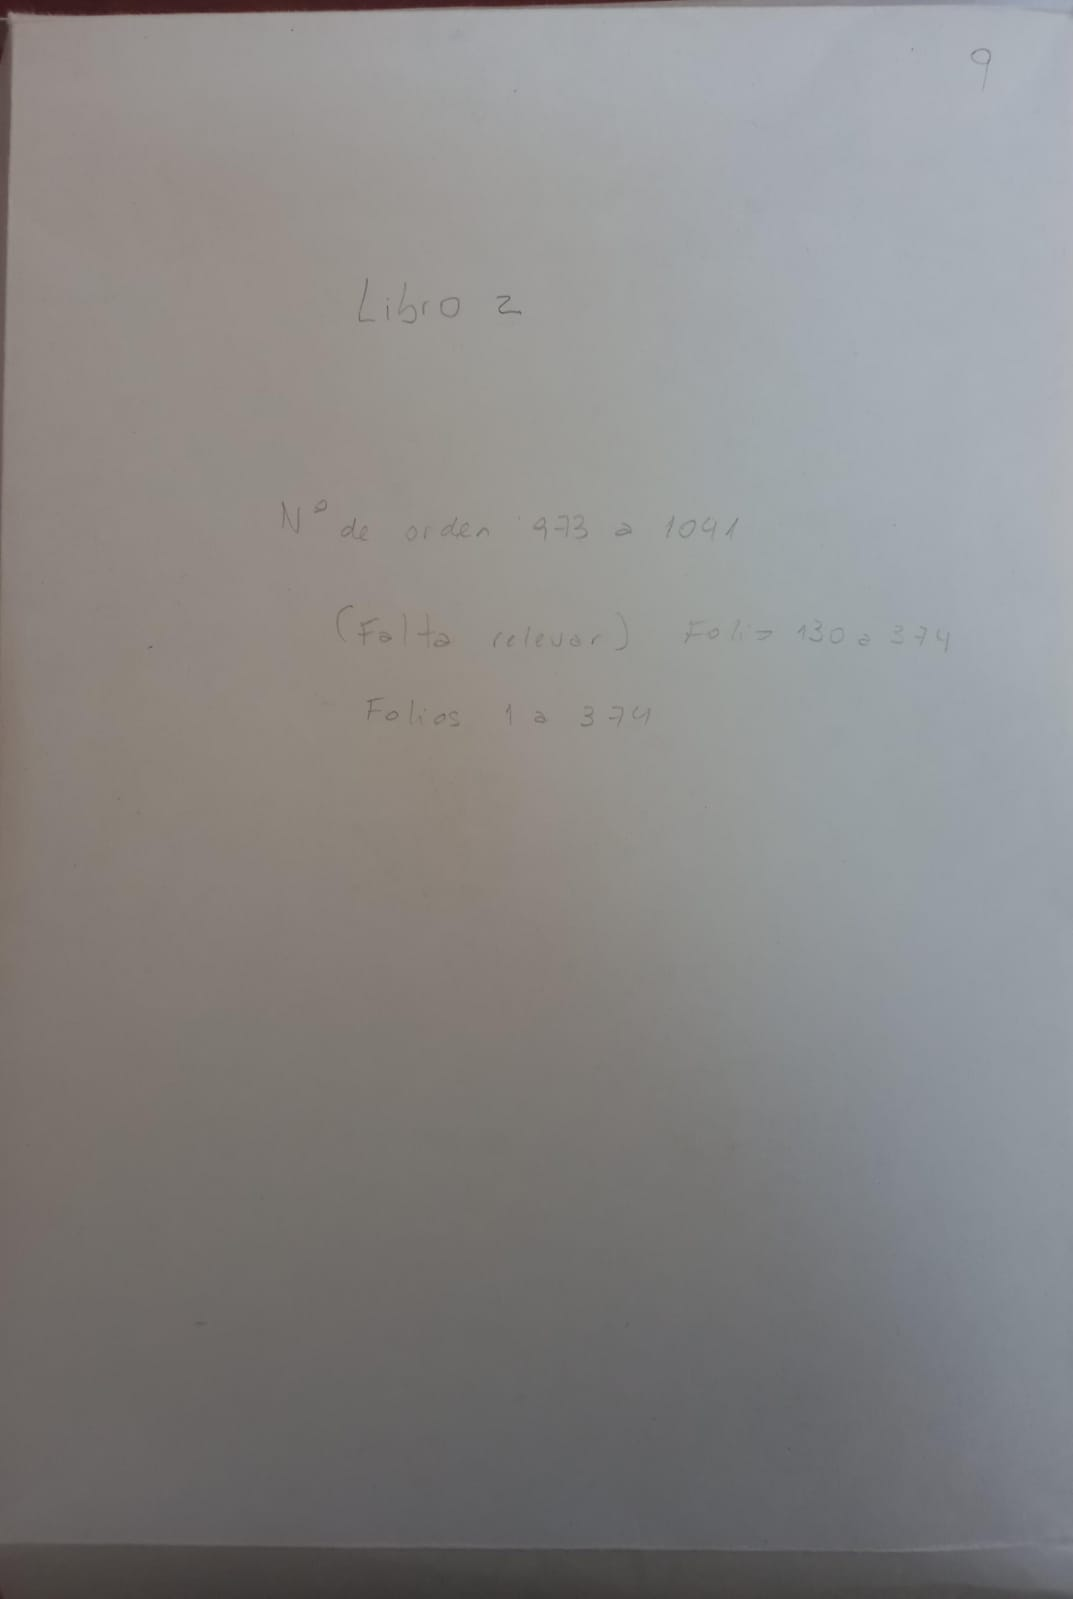 9
Libro 2
Nº de orden 973 a 1091
(Falta relevar) Folio 130 a 374
Folios 1 a 374